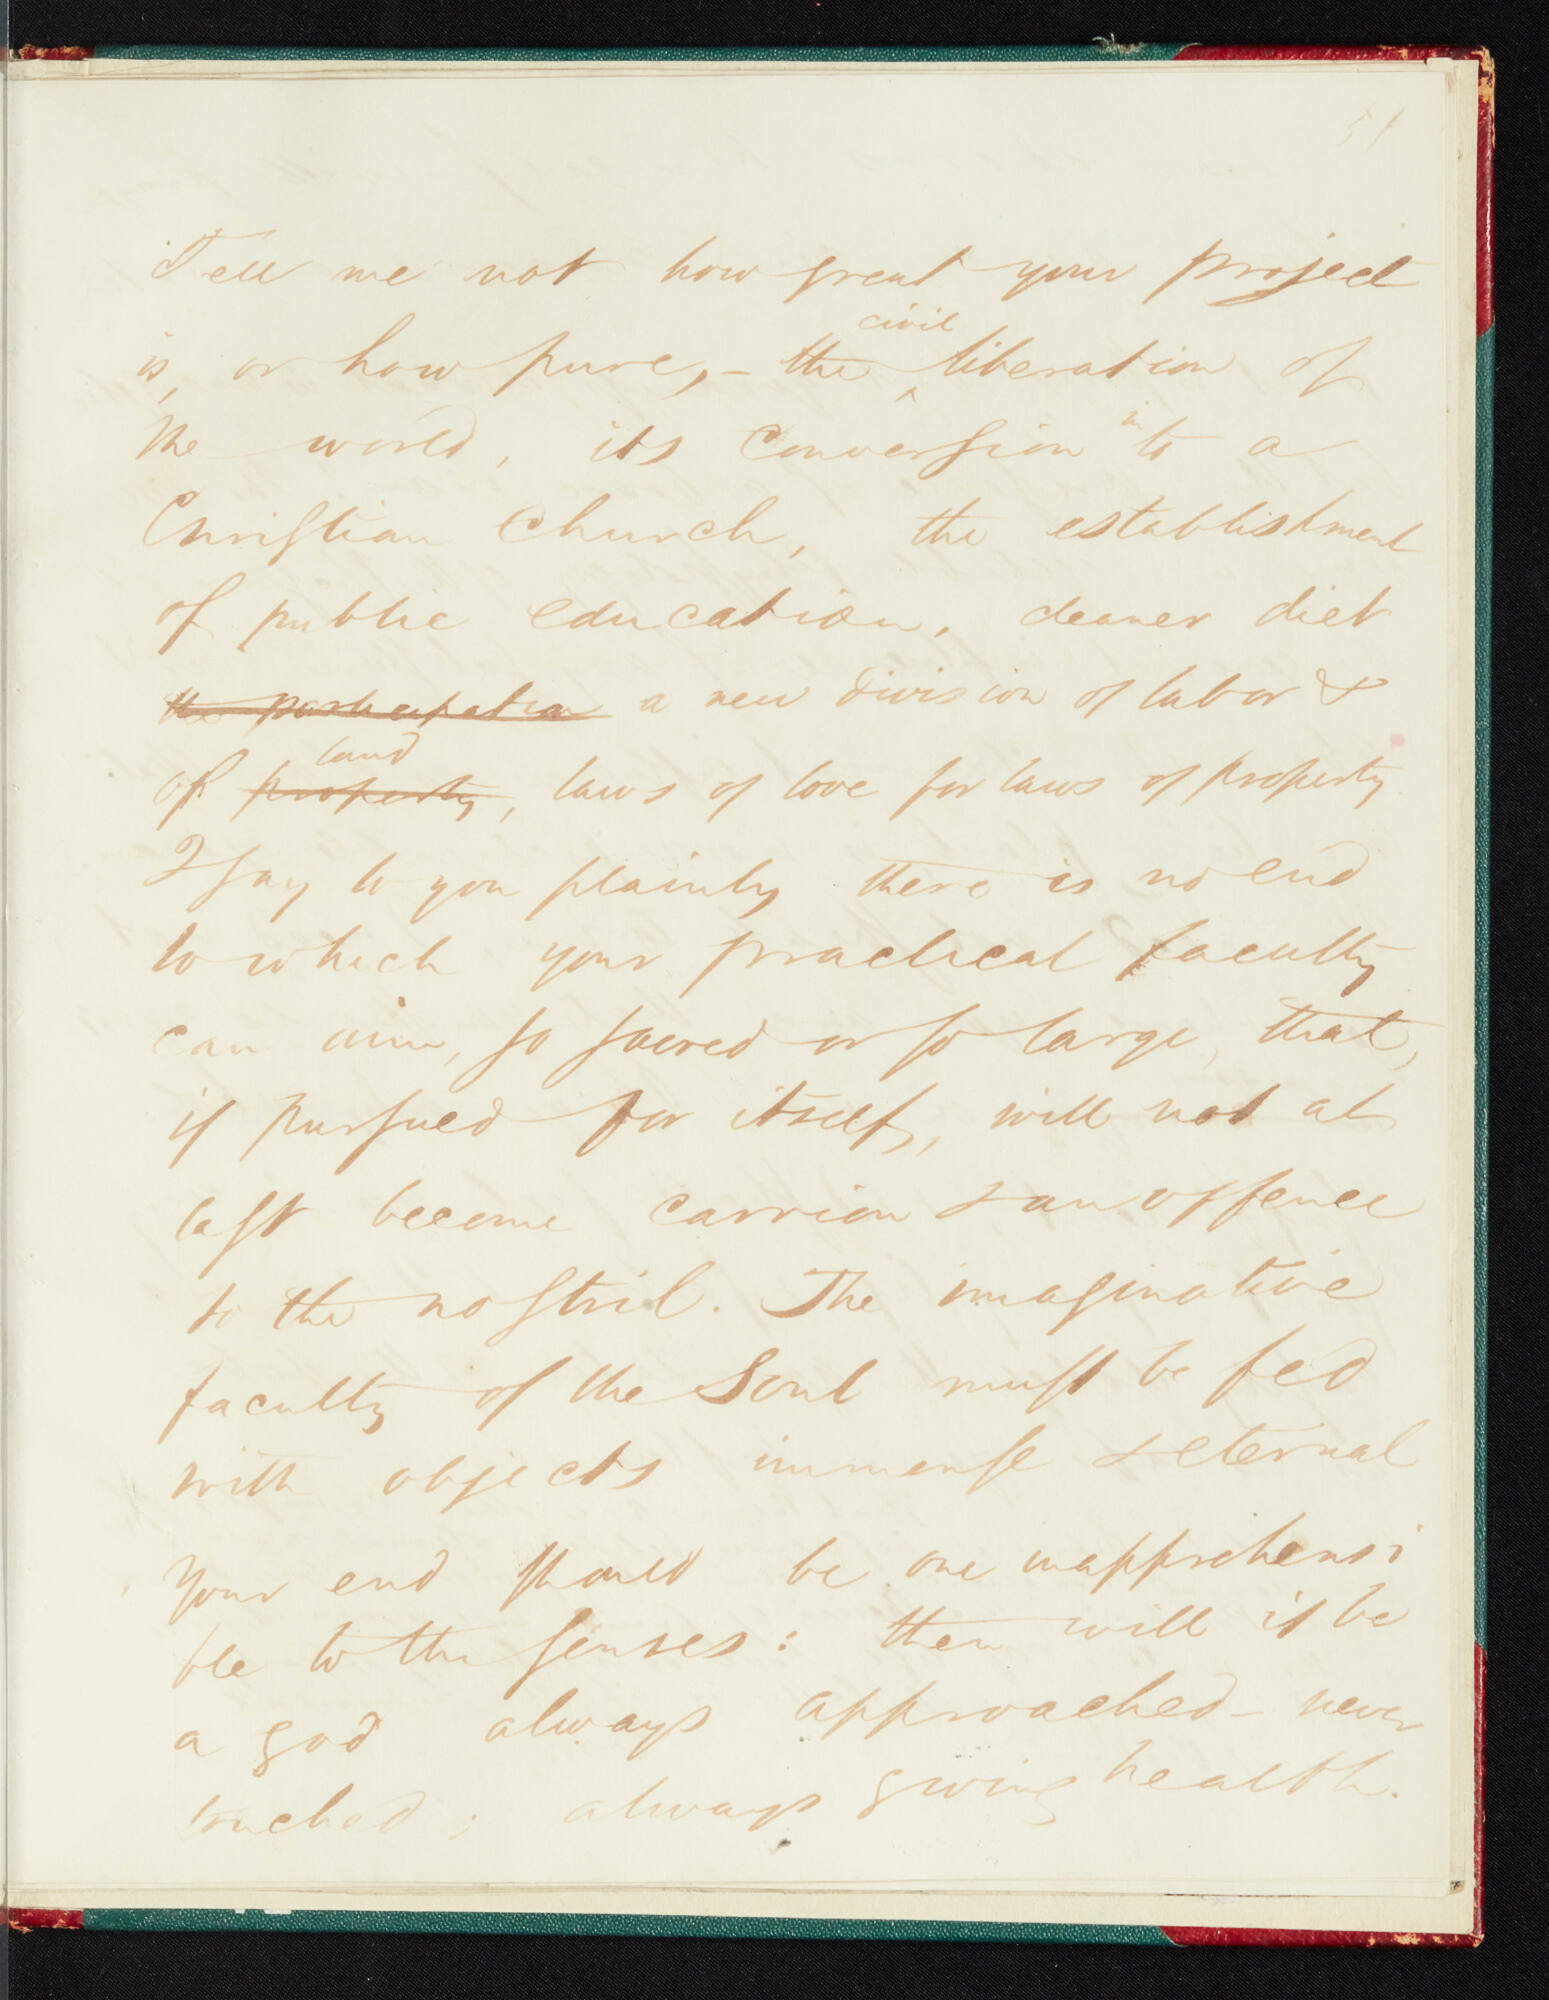 51
Tell me not how great your project
is, or how pure, – the civil liberation of
the world, its conversion into a
Christian Church, the establishment
of public education, cleaner diet
the participation a new division of labor &
of property land, laws of love for laws of property
I say to you plainly there is no end
to which your practical faculty
can aim, so sacred or so large, that,
if pursued for itself, will not at
last become carrion & an offence
to the nostril. The imaginative
faculty of the Soul must be fed
with objects immense & eternal
Your end should be one inapprehensi
ble to the senses: then will it be
a god always approached – never
touched; always giving health.